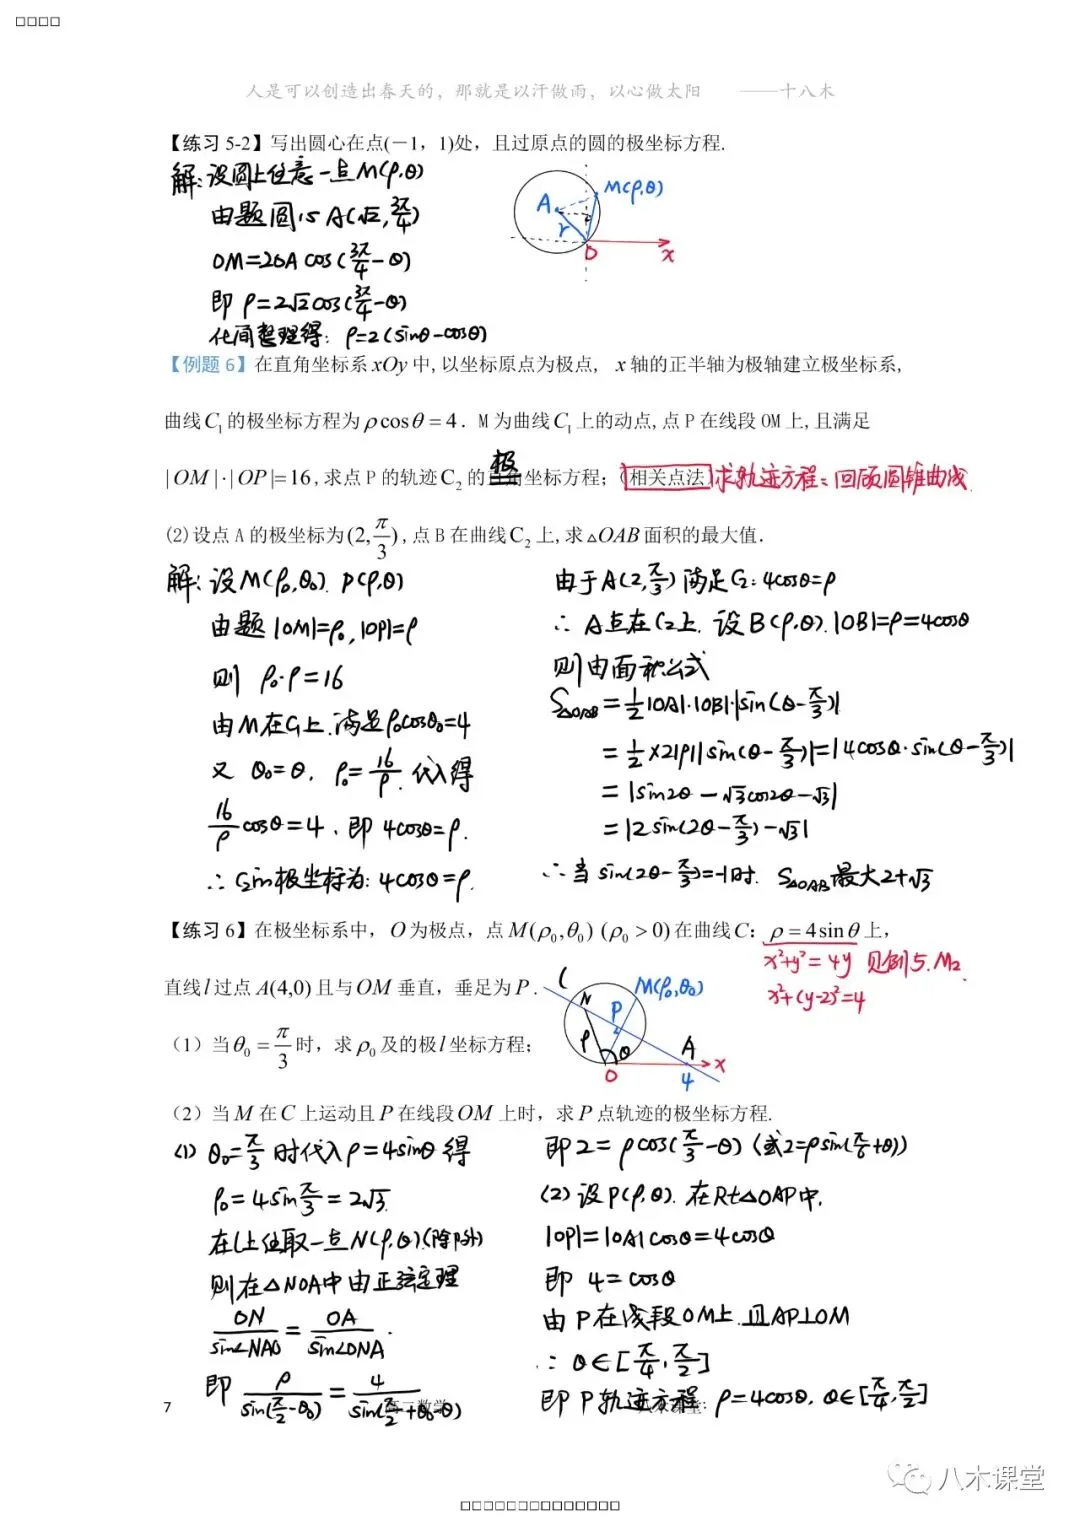 人是可以创造出春天的，那就是以汗做雨，以心做太阳 ——十八木
【练习 5-2】写出圆心在点(－1，1)处，且过原点的圆的极坐标方程.
解:设圆上任意一点M(ρ,θ)
由题圆心A(√2,3π/4)
OM=2OA cos(3π/4-θ)
即 ρ=2√2cos(3π/4-θ)
化简整理得: ρ=2(sinθ-cosθ)
A
M(ρ,θ)
r
O
x
【例题 6】在直角坐标系 xOy 中, 以坐标原点为极点, x 轴的正半轴为极轴建立极坐标系,
曲线C₁的极坐标方程为ρcosθ=4. M 为曲线C₁上的动点, 点 P 在线段 OM 上, 且满足
|OM|·|OP|=16, 求点 P 的轨迹C₂的极坐标方程; (相关点法) 求轨迹方程:回顾圆锥曲线.
(2)设点 A 的极坐标为(2,π/3), 点 B 在曲线C₂上, 求△OAB面积的最大值.
解:设M(ρ₀,θ₀). P(ρ,θ)
由题 |OM|=ρ₀, |OP|=ρ
则 ρ₀·ρ=16
由M在C₁上.满足ρ₀cosθ₀=4
又 θ₀=θ. ρ₀=16/ρ.代入得
16/ρ cosθ=4. 即 4cosθ=ρ.
∴ C₂的极坐标为: 4cosθ=ρ.
由于A(2,π/3)满足C₂: 4cosθ=ρ
∴ A点在C₂上. 设B(ρ,θ).|OB|=ρ=4cosθ
则由面积公式
S△OAB=1/2|OA|·|OB|·|sin(θ-π/3)|
=1/2×2|ρ||sin(θ-π/3)|=|4cosθ·sin(θ-π/3)|
=|sin2θ-√3cos2θ-√3|
=|2sin(2θ-π/3)-√3|
∴当 sin(2θ-π/3)=-1时. S△OAB最大2+√3
【练习 6】在极坐标系中，O为极点，点M(ρ₀,θ₀)(ρ₀>0)在曲线C：ρ=4sinθ上，
x²+y²=4y 见例5.M2
x²+(y-2)²=4
直线l过点A(4,0)且与OM垂直，垂足为P.
（1）当θ₀=π/3时，求ρ₀及的极l坐标方程；
N
P
M(ρ₀,θ₀)
ρ
θ
A
O
4
x
（2）当M在C上运动且P在线段OM上时，求P点轨迹的极坐标方程.
(1) θ₀=π/3时代入ρ=4sinθ得
ρ₀=4sinπ/3=2√3.
在l上任取一点N(ρ,θ).(除P外)
则在△NOA中由正弦定理
ON/sin∠NAO=OA/sin∠ONA.
即 ρ/sin(π/2-θ₀)=4/sin(π/2+θ₀-θ)
即2=ρcos(π/3-θ)(或2=ρsin(π/6+θ))
(2)设P(ρ,θ). 在Rt△OAP中.
|OP|=|OA|cosθ=4cosθ
即 4=cosθ
由P在线段OM上.且AP⊥OM
∴ θ∈[π/4,π/2]
即P轨迹方程 ρ=4cosθ. θ∈[π/4,π/2]
7
高二数学
八木课堂
八木课堂